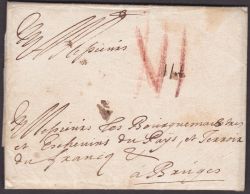 Messieurs
VI
Messieurs Les Bourguemaistres
et Eschevins du Pays et Terroir
du francq
a Bruges